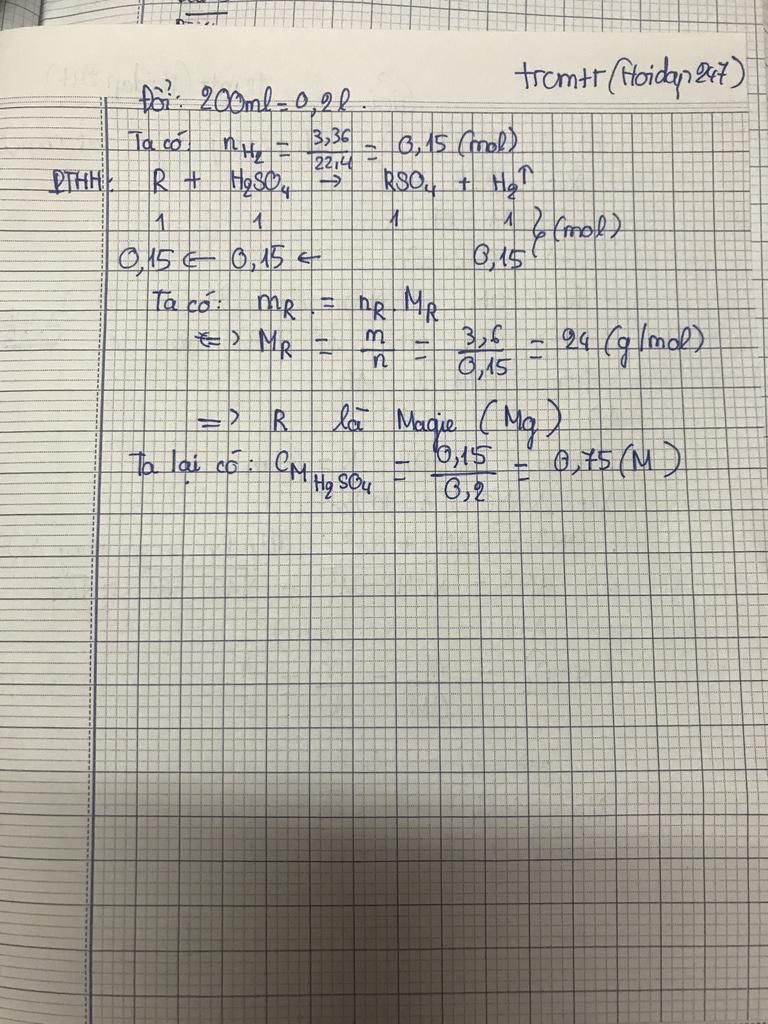 trcmtr (Hoidap247)
Đổi: 200ml = 0,2l.
Ta có: nH2 = 3,36/22,4 = 0,15 (mol)
PTHH: R + H2SO4 → RSO4 + H2↑
1 1 1 1 } (mol)
0,15 ← 0,15 ← 0,15
Ta có: mR = nR. MR
<=> MR = m/n = 3,6/0,15 = 24 (g/mol)
=> R là Magie (Mg)
Ta lại có: CM H2SO4 = 0,15/0,2 = 0,75 (M)